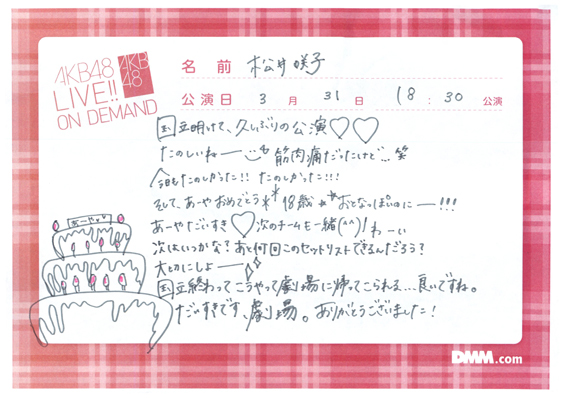 AKB48
LIVE!!
ON DEMAND
AKB
48
名前 松井咲子
公演日 3月31日 18:30 公演
国立明けて、久しぶりの公演♡♡
たのしいねー 筋肉痛だったけど…笑
今日もたのしかった!! たのしかった!!!
そして、あーやおめでとう 18歳 おとなっぽいのにー!!!
あーやだいすき♡次のチームも一緒(^^)! わーい
次はいつかな?あと何回このセットリストできるんだろう?
大切にしよー
国立終わってこうやって劇場に帰ってこられる…良いですね。
だいすきです、劇場。ありがとうございました!
あーや
DMM.com